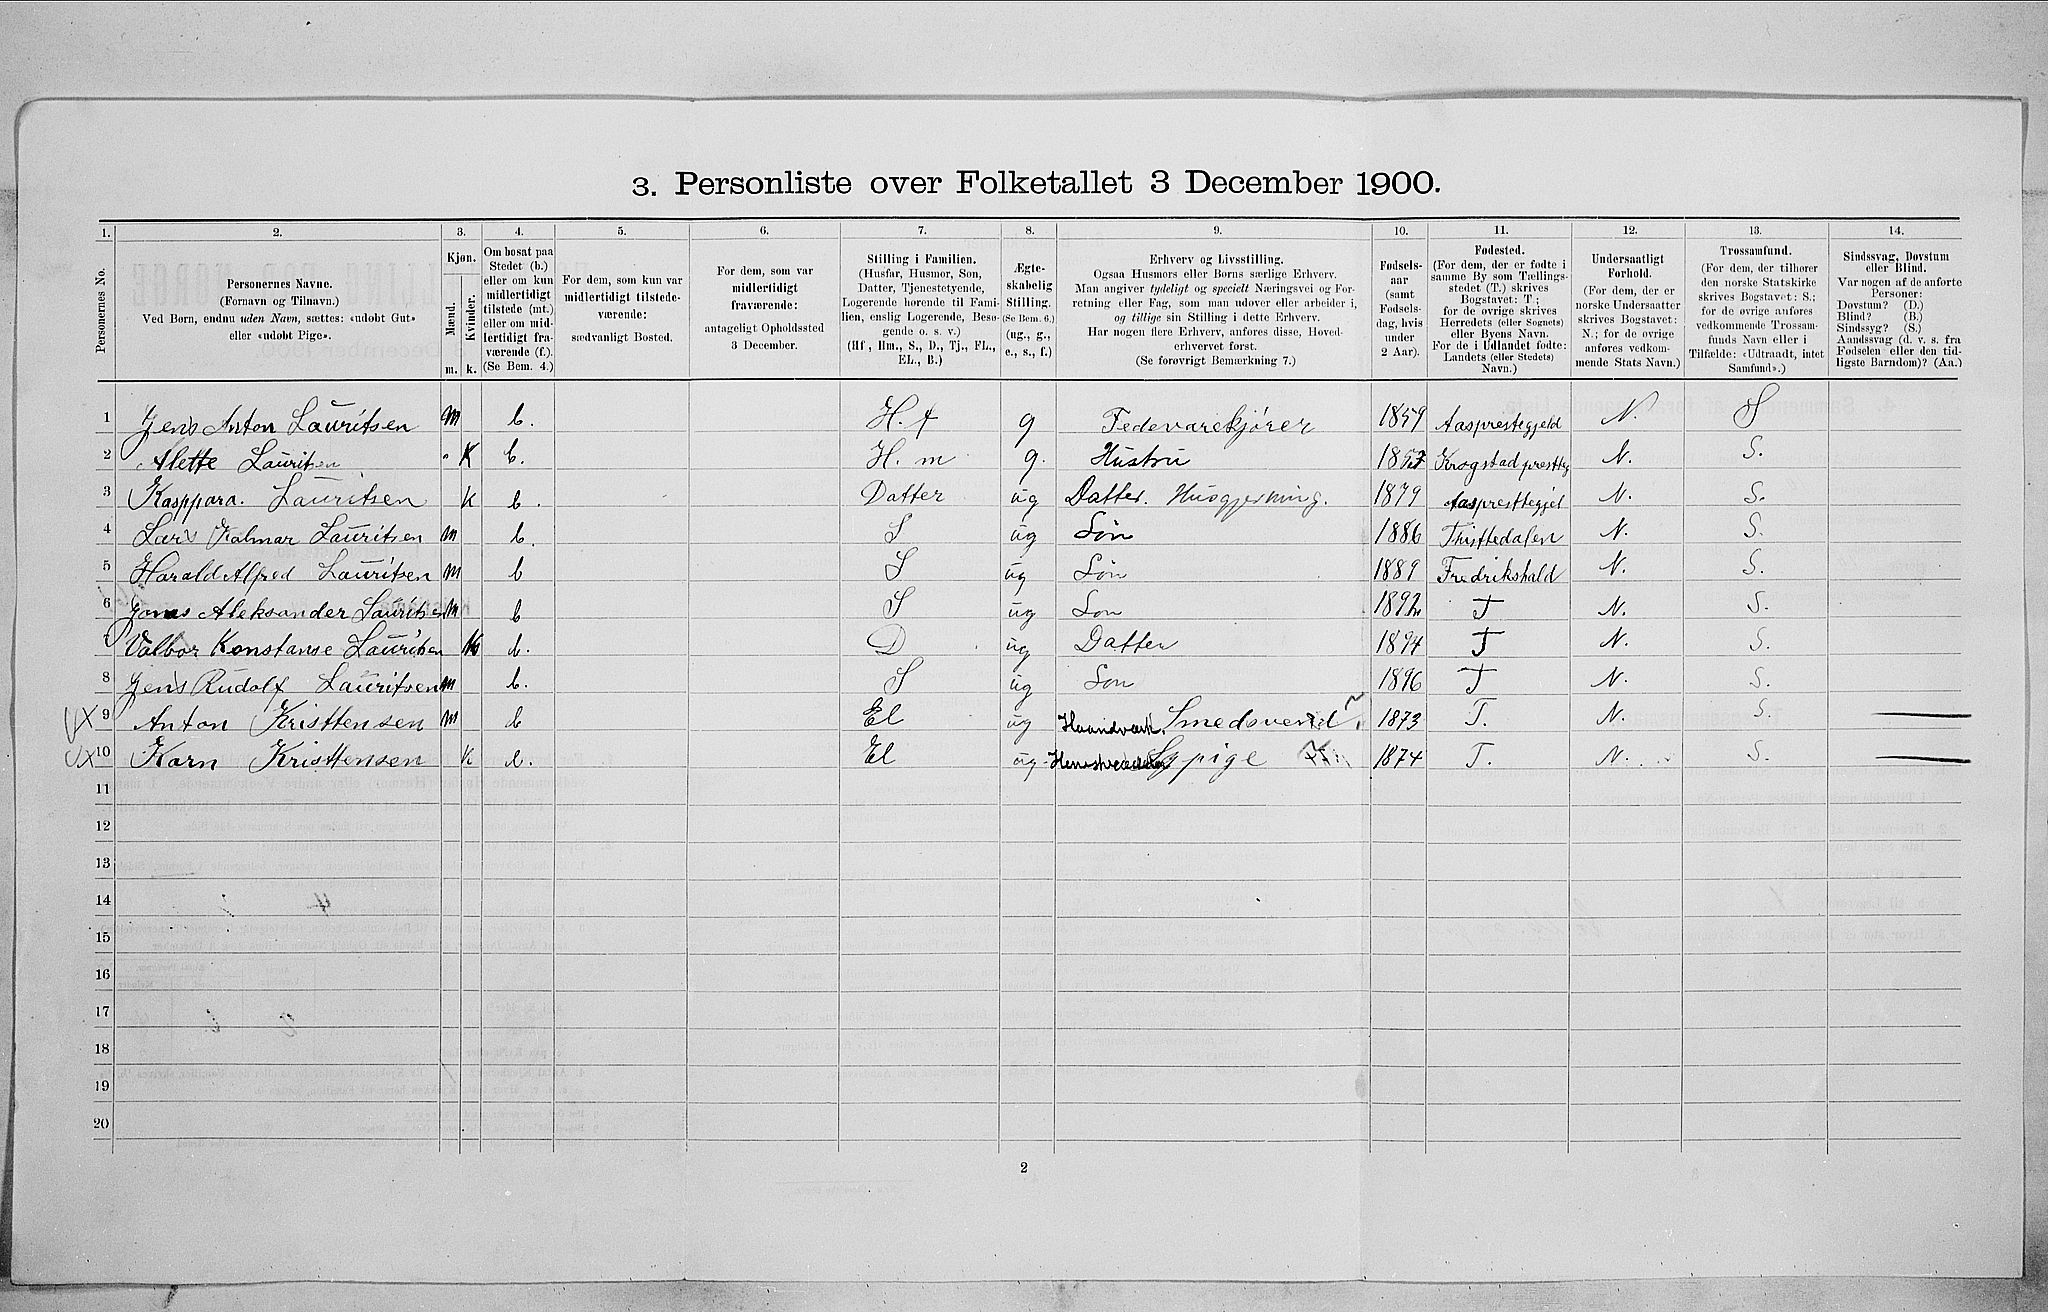 3. Personliste over Folketallet 3 December 1900.
1. 2. 3. 4. 5. 6. 7. 8. 9. 10. 11. 12. 13. 14.
Personernes No.
Personernes Navne.
(Fornavn og Tilnavn.)
Ved Børn, endnu uden Navn, sættes: «udøbt Gut»
eller «udøbt Pige».
Kjøn.
Mænd.
Kvinder.
m. k.
Om bosat paa
Stedet (b.)
eller om kun
midlertidigt
tilstede (mt.)
eller om mid-
lertidigt fra-
værende (f.).
(Se Bem. 4.)
For dem, som kun var
midlertidigt tilstede-
værende:
sædvanligt Bosted.
For dem, som var
midlertidigt
fraværende:
antageligt Opholdssted
3 December.
Stilling i Familien.
(Husfar, Husmor, Søn,
Datter, Tjenestetyende,
Logerende hørende til Fami-
lien, enslig Logerende, Besø-
gende o. s. v.)
(Hf, Hm., S., D., Tj., FL.,
EL., B.)
Ægte-
skabelig
Stilling.
(Se Bem. 6.)
(ug., g.,
e., s., f.)
Erhverv og Livsstilling.
Ogsaa Husmors eller Børns særlige Erhverv.
Man angiver tydeligt og specielt Næringsvei og For-
retning eller Fag, som man udover eller arbeider i,
og tillige sin Stilling i dette Erhverv.
Har nogen flere Erhverv, anføres disse, Hoved-
erhvervet først.
(Se forøvrigt Bemærkning 7.)
Fødsels-
aar
(samt
Fødsels-
dag, hvis
under
2 Aar).
Fødested.
(For dem, der er fødte i
samme By som Tællings-
stedet (T.) skrives
Bogstavet: T;
for de øvrige skrives
Herredets (eller Sognets)
eller Byens Navn.
For de i Udlandet fødte:
Landets (eller Stedets)
Navn.)
Undersaatligt
Forhold.
(For dem, der er
norske Undersaatter
skrives Bogstavet:
N.; for de øvrige
anføres vedkom-
mende Stats Navn.)
Trossamfund.
(For dem, der tilhører
den norske Statskirke
skrives Bogstavet: S.;
for de øvrige anføres
vedkommende Trossam-
funds Navn eller i
Tilfælde: «Udtraadt, intet
Samfund».)
Sindssvag, Døvstum
eller Blind.
Var nogen af de anførte
Personer:
Døvstum? (D.)
Blind? (B.)
Sindssyg? (S.)
Aandssvag (d. v. s. fra
Fødselen eller den tid-
ligste Barndom)? (Aa.)
1 Jens Anton Lauritsen m b. H. f g Fedevarekjører 1859 Aasprestegjeld N. S
2 Alette Lauritsen K b. H. m g. Hustru 1857 Krogstad prestteg N. S.
3 Kasppara. Lauritsen K b. Datter ug Datter. Husgjerning. 1879 Aaspresttegjel N. S.
4 Lars Kalmar Lauritsen m b. S ug Søn 1886 Thisttedalen N. S.
5 Harald Alfred Lauritsen m b S ug Søn 1889 Fredrikshald N. S.
6 Jonas Aleksander Lauritsen m b S ug Søn 1892 T N. S.
7 Valbor Konstanse Lauritsen K b. D ug Datter 1894 T N. S.
8 Jens Rudolf Lauritsen m b. S ug Søn 1896 T N. S.
9 Anton Kristtensen m b El ug Haandværk. Smedsvend 1873 T. N. S.
10 Karn Kristtensen K b. El ug Sypige 1874 T. N. S.
11
12
13
14
15
16
17
18
19
20
2